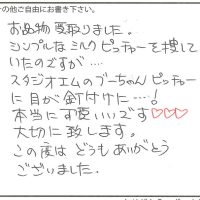 の他ご自由にお書き下さい。
お品物受取りました。
シンプルなミルクピッチャーを捜して
いたのですが…．
スタジオエムのブーちゃんピッチャー
に目が釘付けに…!
本当に可愛いいです♡♡♡
大切に致します。
この度は どうもありがとう
ございました。